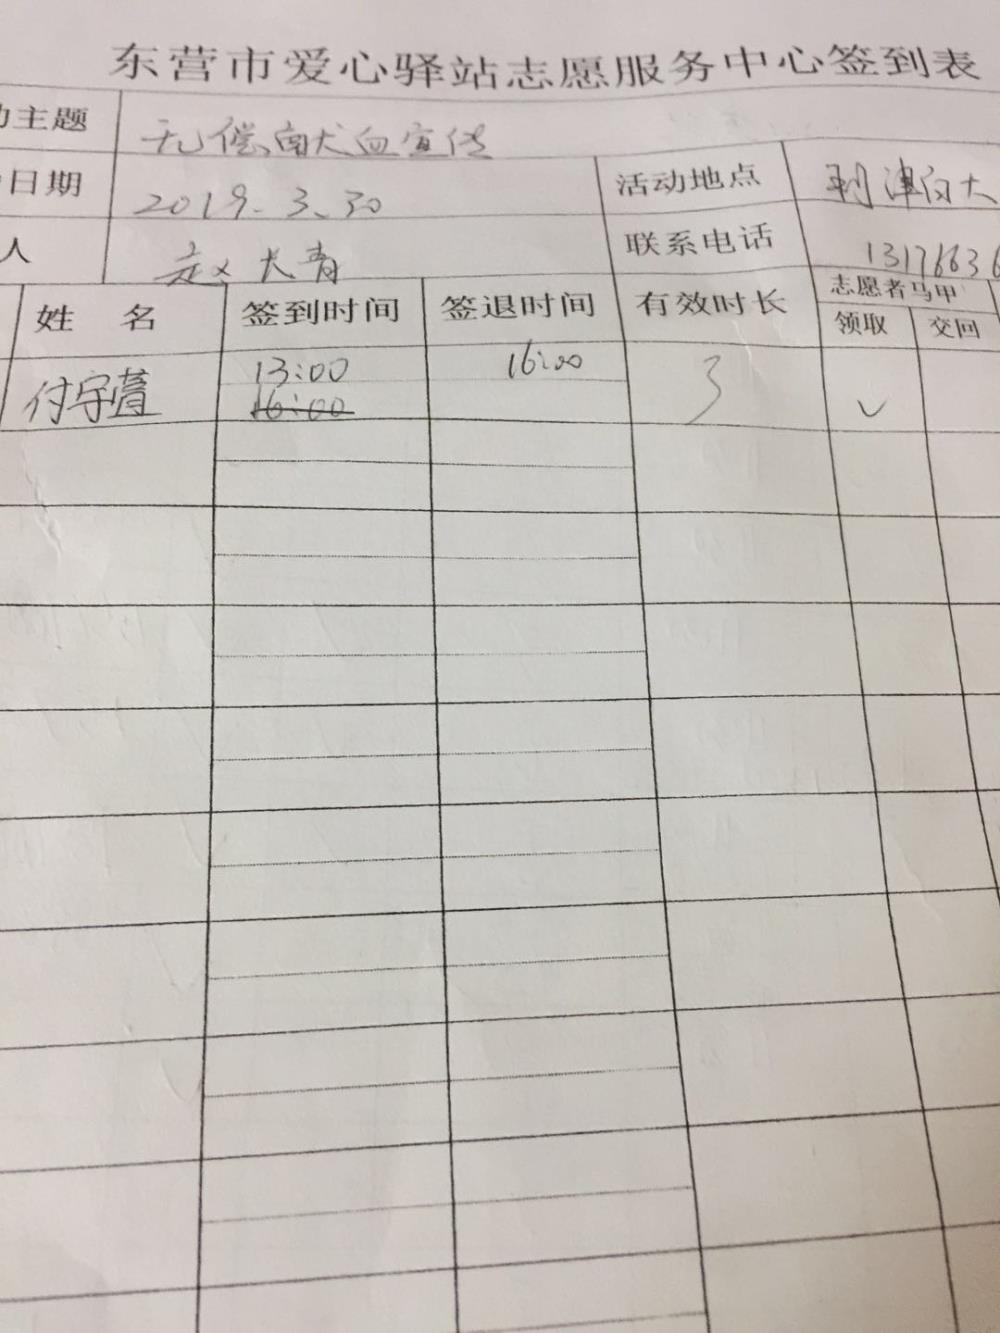 东营市爱心驿站志愿服务中心签到表
动主题 无偿献血宣传
日期 2019.3.30 活动地点 利津向大
人 赵长青 联系电话 1317663
姓 名 签到时间 签退时间 有效时长 志愿者马甲
领取 交回
付宇萱 13:00 16:00 3 ✓
16:00